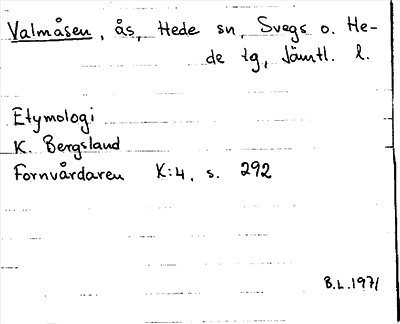 Valmåsen, ås, Hede sn, Svegs o. He-
de tg, Jämtl. l.
Etymologi
K. Bergsland
Fornvårdaren K:4, s. 292
B.L.1971